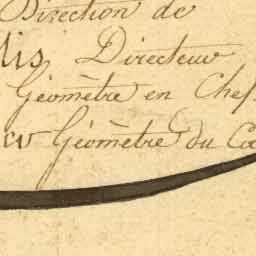 Direction de
lis Directeur
Géomètre en Chef
Géomètre du Ca